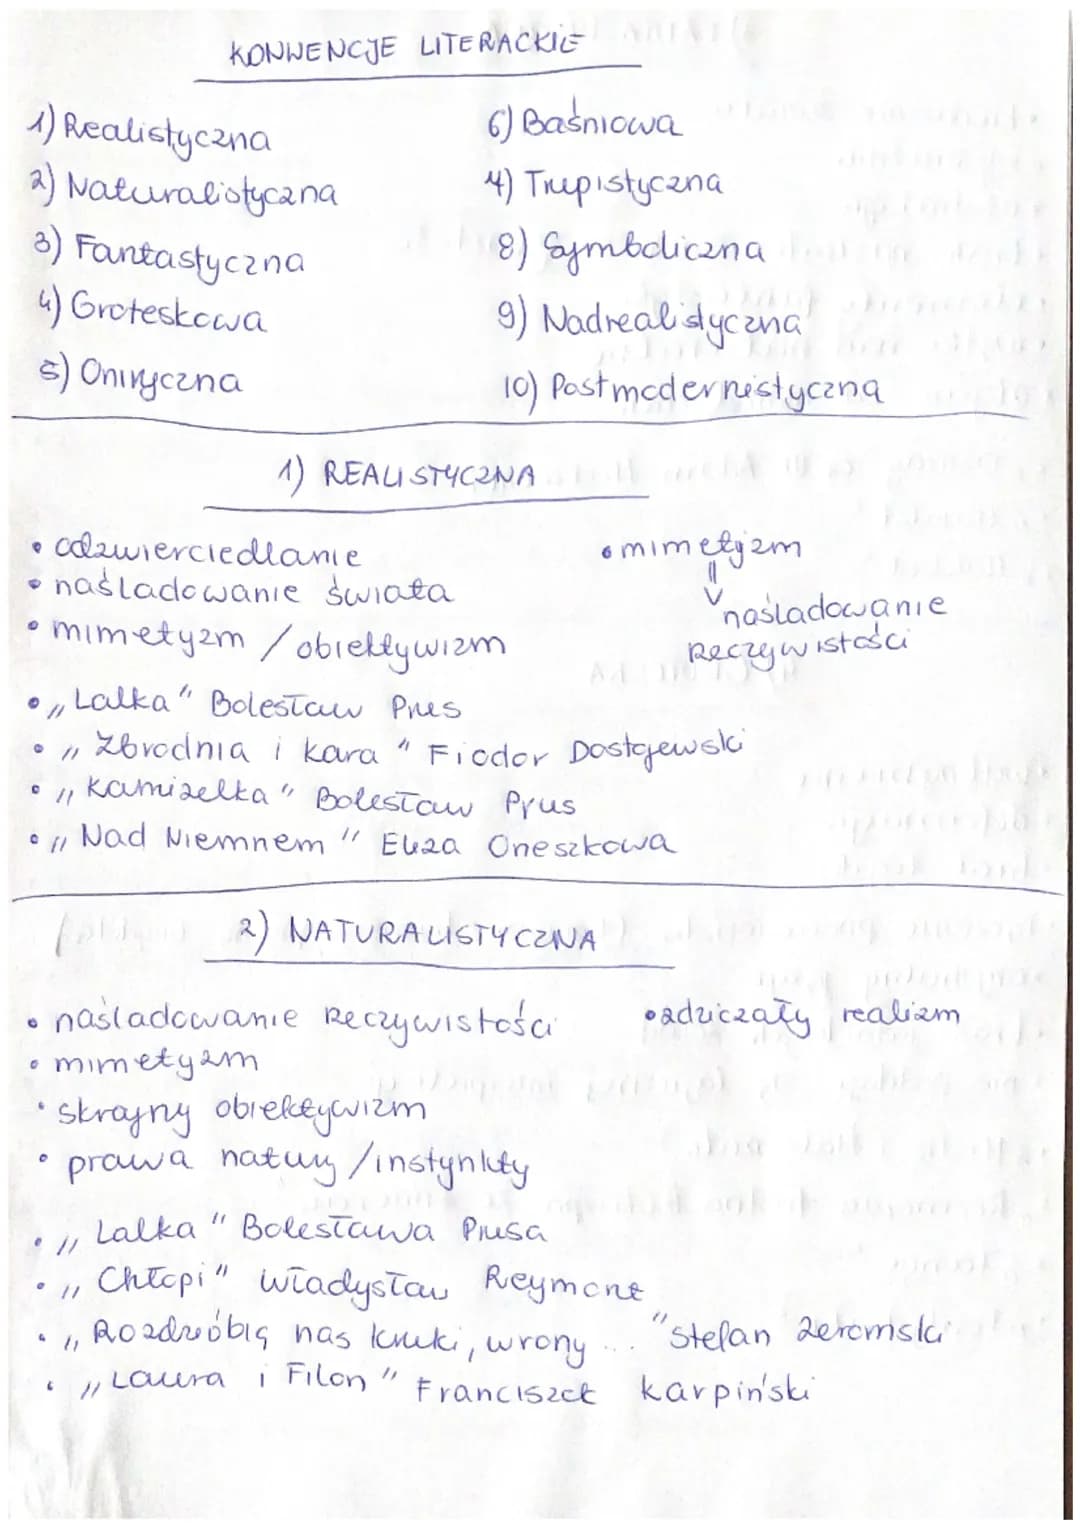 KONWENCJE LITERACKIE
1) Realistyczna
2) Naturalistyczna
3) Fantastyczna
4) Groteskowa
5) Oniryczna
6) Baśniowa
4) Turpistyczna
8) Symboliczna
9) Nadrealistyczna
10) Postmodernistyczna
1) REALISTYCZNA
• odzwierciedlanie
• naśladowanie świata
• mimetyzm / obiektywizm
• mimetyzm
naśladowanie
rzeczywistości
• „Lalka" Bolesław Prus
• „Zbrodnia i kara" Fiodor Dostojewski
• „Kamizelka" Bolesław Prus
• „Nad Niemnem" Eliza Orzeszkowa
2) NATURALISTYCZNA
• naśladowanie rzeczywistości
• mimetyzm
• skrajny obiektywizm
• prawa natury / instynkty
• zdziczały realizm
• „Lalka" Bolesława Prusa
• „Chłopi" Władysław Reymont
• „Rozdzióbią nas kruki, wrony ..." Stefan Żeromski
• „Laura i Filon" Franciszek Karpiński